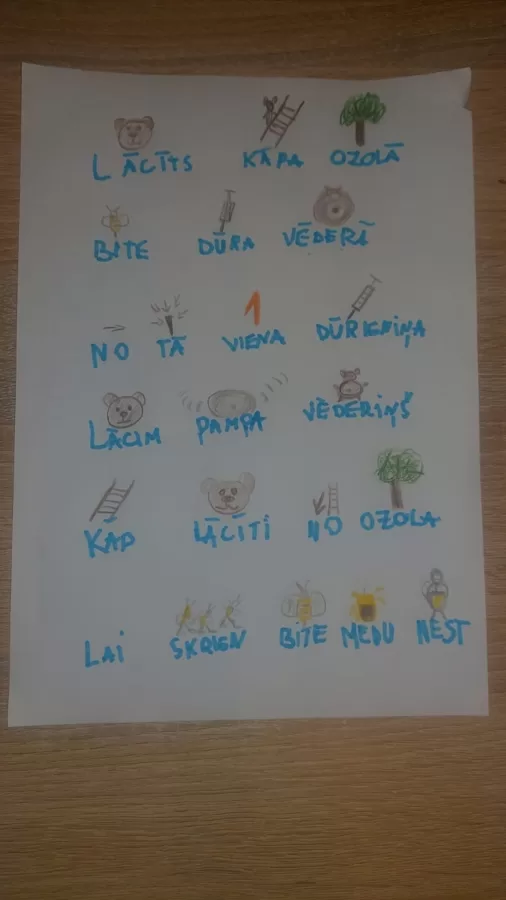 LĀCĪTS KĀPA OZOLĀ
BITE DŪRA VĒDERĀ
NO TĀ 1 VIENA DŪRIENIŅA
LĀCIM PAMPA VĒDERIŅŠ
KĀP LĀCĪTI NO OZOLA
LAI SKRIEN BITE MEDU NEST